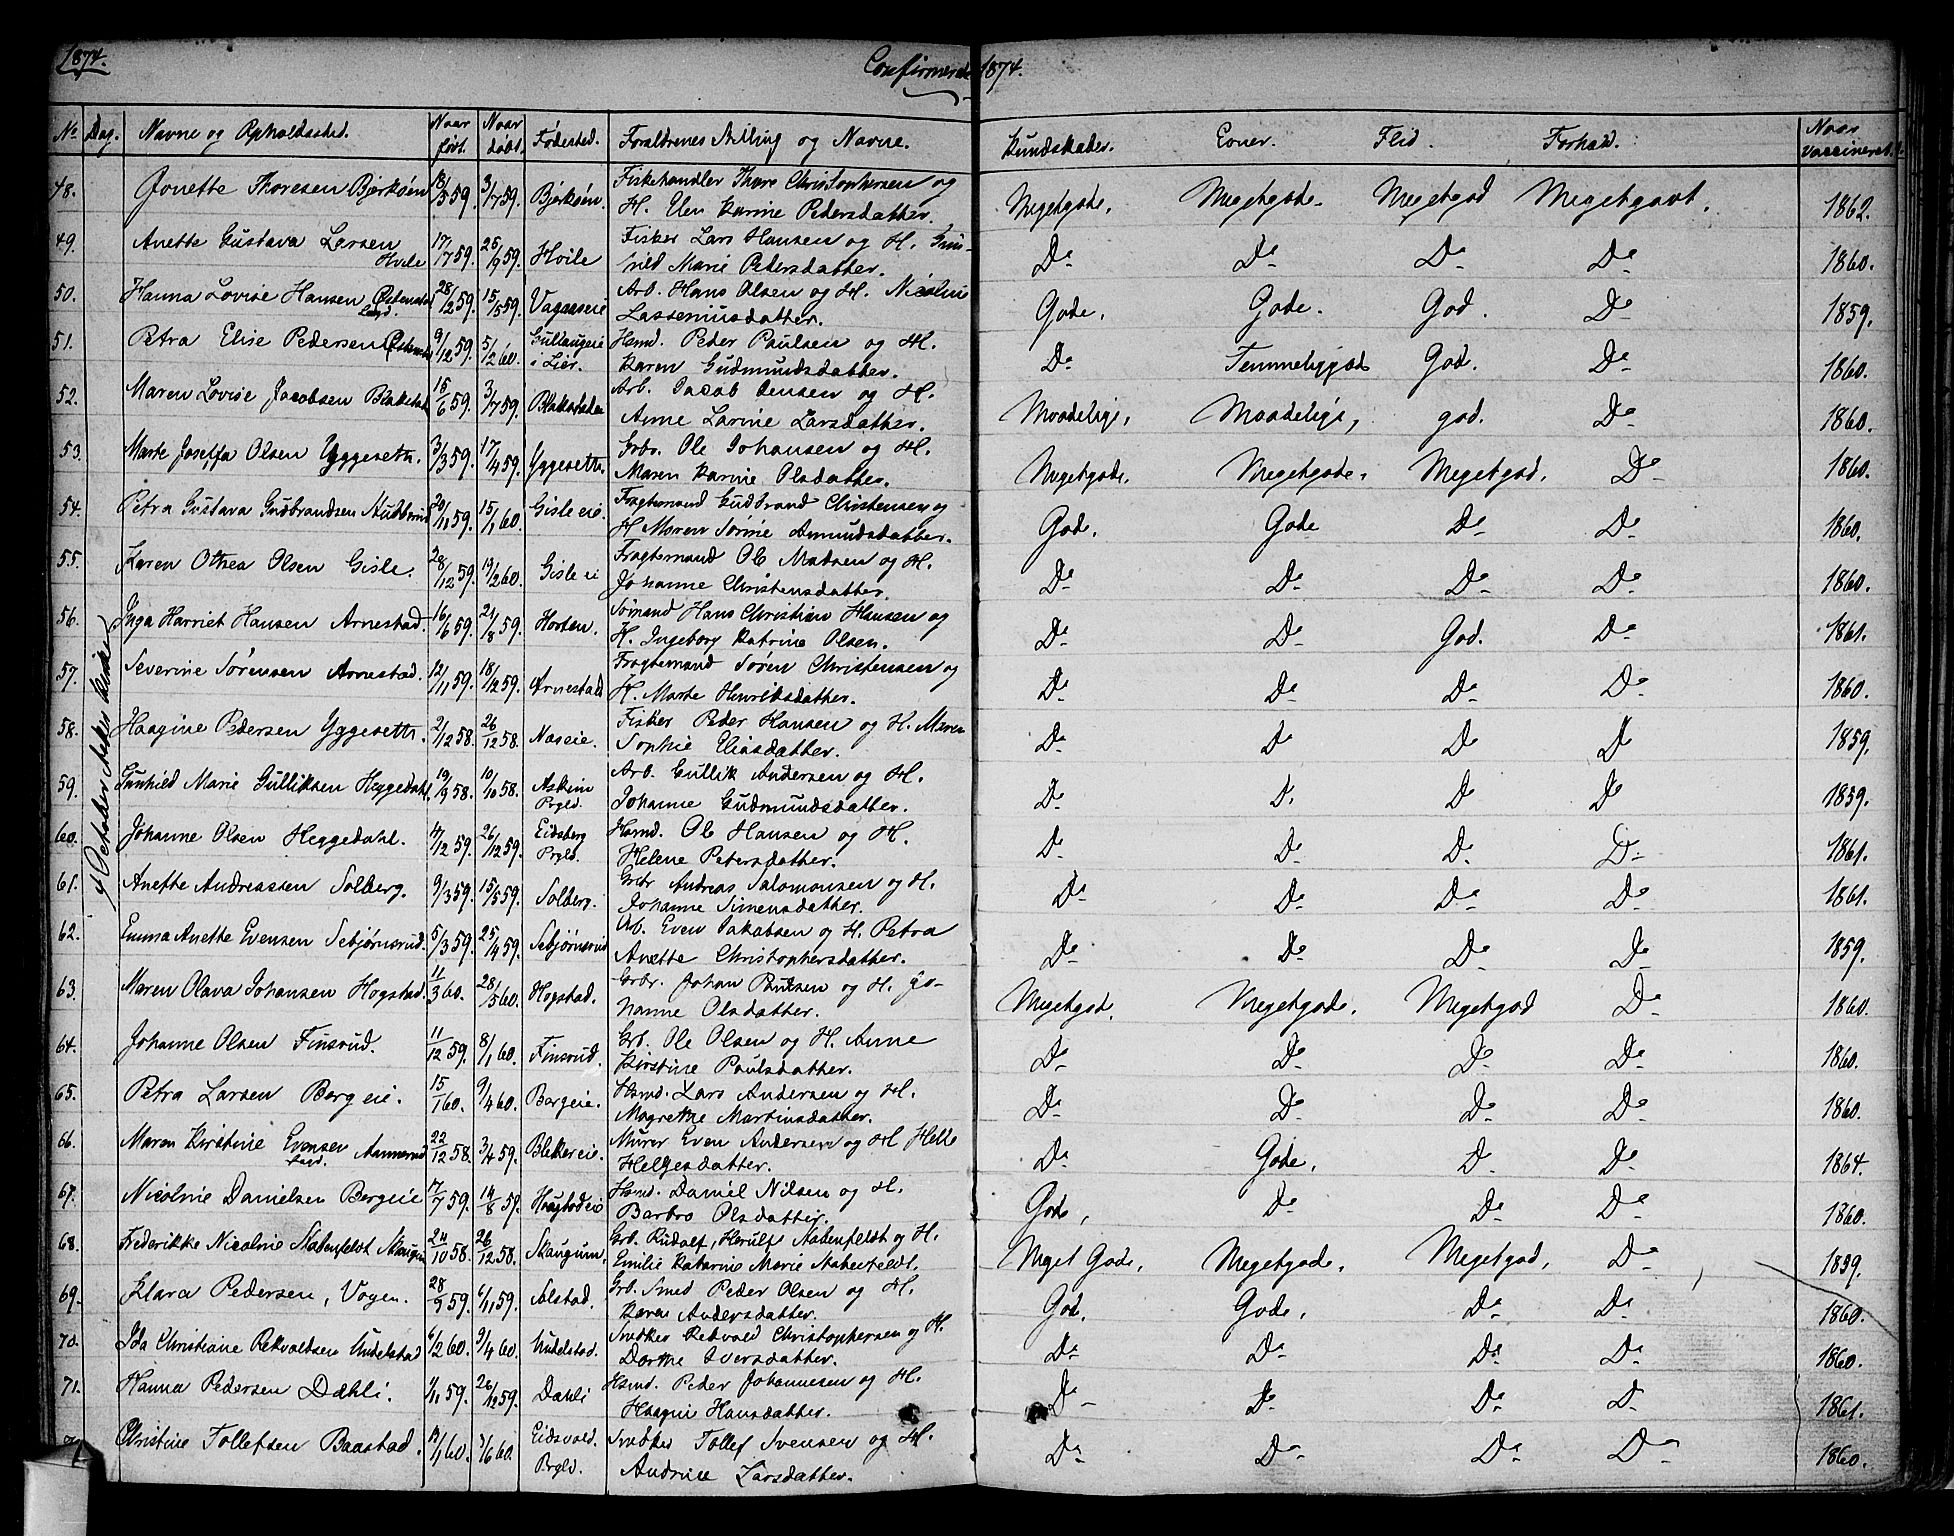 1874. Confirmerede 1874.
No. Dag. Navne og Opholdssted. Naar født. Naar døbt. Fødested. Forældrenes Stilling og Navne. Kundskaber. Evner. Flid. Forhold. Naar vaccineret.
4 October Asker Kirke
48. Jonette Thoresen Bjerkøen 18/5 59. 3/7 59. Bjerkøen. Fiskehandler Thore Christophersen og
H. Elen Karine Pedersdatter. Megetgode. Megetgode. Megetgod Megetgodt. 1862.
49. Anette Gustava Larsen Hvile 17/7 59. 25/9 59. Hvile Fisker Lars Hansen og H. Gun-
hild Marie Pedersdatter. Do Do Do Do 1860.
50. Hanna Lovise Hansen Østenstad lægd. 28/2 59. 15/5 59. Vagaaseie Arb. Hans Olsen og H. Nicoline
Lasseniusdatter. Gode. Gode. God. Do 1859.
51. Petra Elise Pedersen Østenstad 9/12 59. 5/2 60. Gullaugeie i Lier. Hsmd. Peder Paulsen og H.
Karen Gudmundsdatter. Do Temmeliggod God. Do 1860.
52. Maren Lovise Jacobsen Blakstad 15/6 59. 3/7 59. Blakstadeie Arb. Jacob Jensen og H.
Anne Larine Larsdatter. Maadelige, Maadelige, god. Do 1860.
53. Marte Joseffa Olsen Yggeseth. 3/3 59. 17/4 59. Yggeseth. Grbr. Ole Johansen og H.
Maren Karine Olsdatter. Megetgode. Megetgode. Megetgod. Do 1860.
54. Petra Gustava Gudbrandsen 20/11 59. 15/1 60. Gisle eie. Fragtemand Gudbrand Christensen og
H. Maren Sørine Amundsdatter. God. Gode Do Do 1860.
55. Karen Othea Olsen Gisle. 28/12 59. 19/2 60. Gisle ei Fragtemand Ole Madsen og H.
Johanne Christensdatter. Do Do Do Do 1860.
56. Inga Harriet Hansen Arnestad. 16/6 59. 21/8 59. Horten. Sømand Hans Christian Hansen og
H. Ingeborg Katrine Olsen. Do Do God. Do 1861.
57. Severine Sørensen Arnestad. 12/11 59. 18/12 59. Arnestad Fragtemand Søren Christensen og
H. Marte Henriksdatter. Do Do Do Do 1860.
58. Haagine Pedersen Yggeseth. 2/12 58. 26/12 58. Næseie. Fisker Peder Hansen og H. Maren
Sophie Eliasdatter. Do Do Do Do 1859.
59. Gunhild Marie Gulliksen Heggedahl. 19/9 58. 10/10 58. Askim Prgld. Arb. Gullik Andersen og H.
Johanne Gudmundsdatter. Do Do Do Do 1859.
60. Johanne Olsen Heggedahl. 4/12 59. 26/12 59. Eidsberg Prgld. Hsmd. Ole Hansen og H.
Helene Petersdatter. Do Do Do Do 1861.
61. Anette Andreassen Solberg. 9/3 59. 15/5 59. Solberg. Grbr Andreas Salomonsen og H.
Johanne Simensdatter. Do Do Do Do 1861.
62. Emma Anette Evensen Sebjørnsrud. 5/3 59. 25/4 59. Sebjørnsrud Arb. Even Jakobsen og H. Petra
Anette Christophersdatter. Do Do Do Do 1859.
63. Maren Olava Johansen Hogstad. 11/3 60. 28/5 60. Hogstad. Grbr. Johan Paulsen og H. Jo-
hanne Olsdatter. Megetgod. Megetgode. Megetgod Do 1860.
64. Johanne Olsen Finsrud. 11/12 59. 8/1 60. Finsrud. Grb. Ole Olsen og H. Anne
Kirstine Paulsdatter. Do Do Do Do 1860.
65. Petra Larsen Borgeie. 15/1 60. 9/4 60. Borgeie. Hsmd. Lars Andersen og H.
Magrethe Martinsdatter. Do Do Do Do 1860.
66. Maren Kirstine Evensen lægd. Aamerud 22/12 58. 3/4 59. Blekkereie. Murer Even Andersen og H Helle
Helgesdatter. Do Gode. Do Do 1864.
67. Nicoline Danielsen Borgeie 17/7 59. 14/8 59. Hsmd. Daniel Nilsen og H.
Barbro Olsdatter. Gode, Do Do Do 1860.
68. Federikke Nicoline Stabenfeldt Skaugum 24/10 58. 26/12 58. Skaugum. Grb. Rudolf Herulf Stabenfeldt og H.
Emilie Katarine Marie Stabenfeldt. Meget Gode. Megetgode. Megetgod, Do 1859.
69. Klara Pedersen, Vogen. 28/9 59. 6/11 59. Solstad. Grb. Smed Peder Olsen og H.
Karen Andersdatter. God. Gode. Do Do 1860.
70. Ida Christiane Rekvoldtsen Undelstad 6/2 60. 9/4 60. Undelstad. Snedker Rekvold Christophersen og H.
Dorthe Iversdatter. Do Do Do Do 1860.
71. Hanna Pedersen Dæhli. 1/11 59. 26/12 59. Dæhli Hsmd. Peder Johannesen og H.
Haagine Hansdatter. Do Do Do Do 1861.
Christine Tollefsen Baastad. 60. 60. Eidsvold. Prgld. Snedker Tollef Svensen og H.
Andrine Larsdatter. Do Do Do Do 1860.